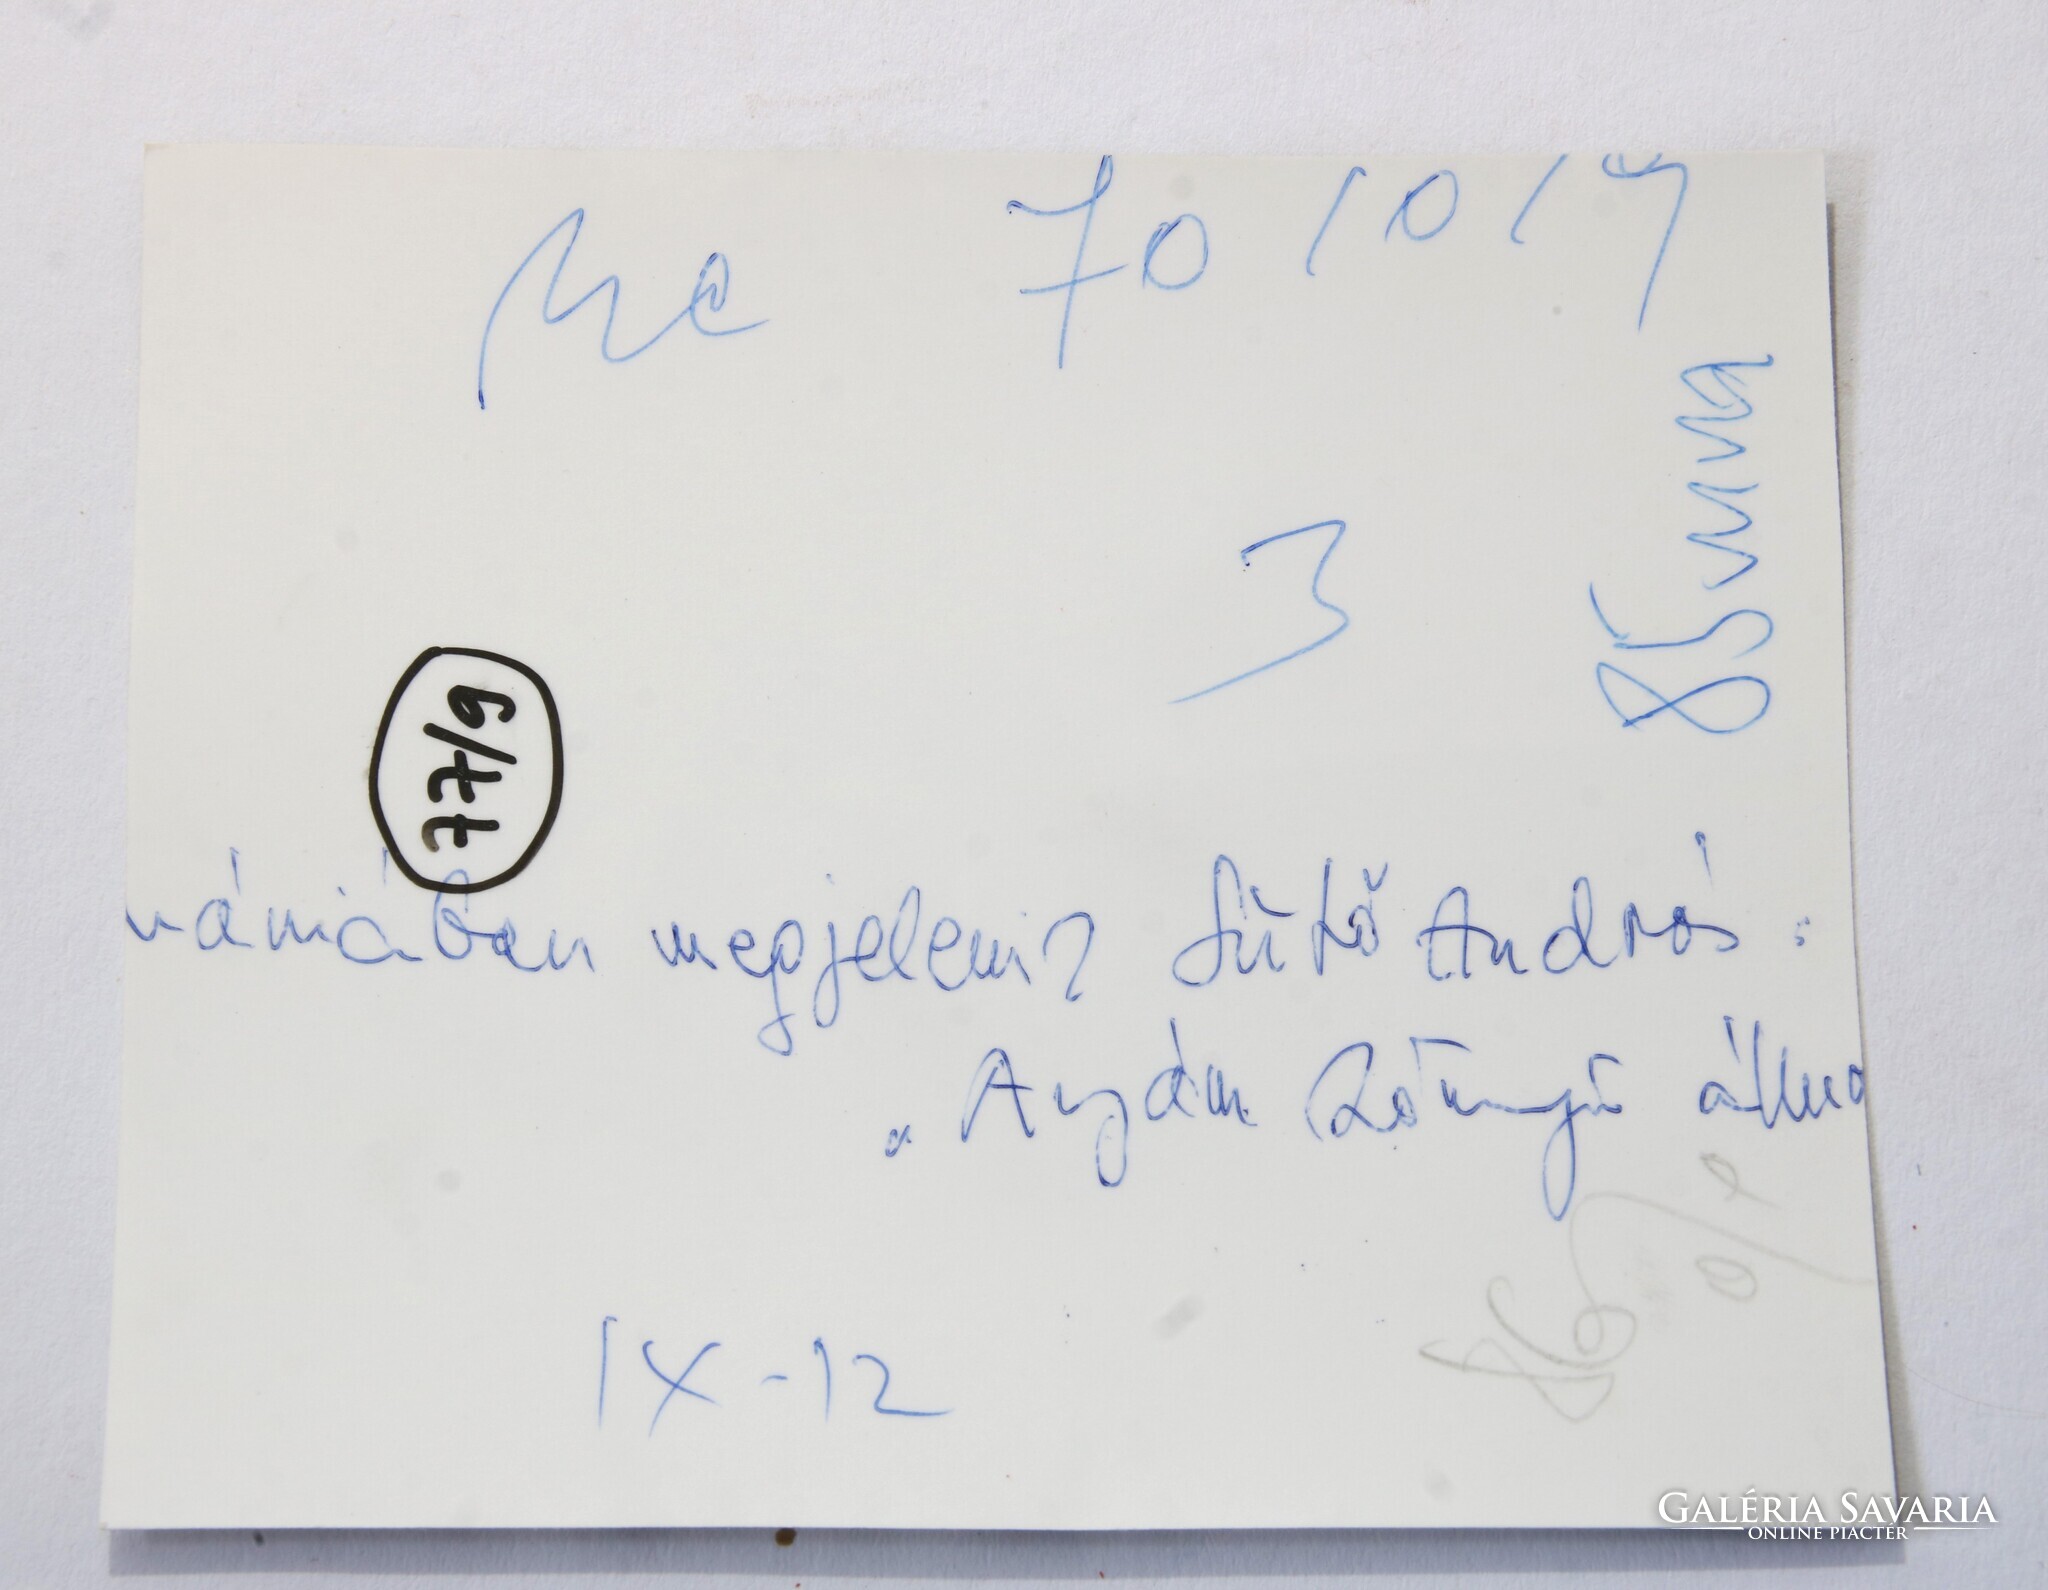 Mc 70/0/9
85 mm
3
77/9
mániában megjelent Sütő András:
"Anyám könnyű álmo
86%
IX-12
GALÉRIA SAVARIA
ONLINE PIACTÉR